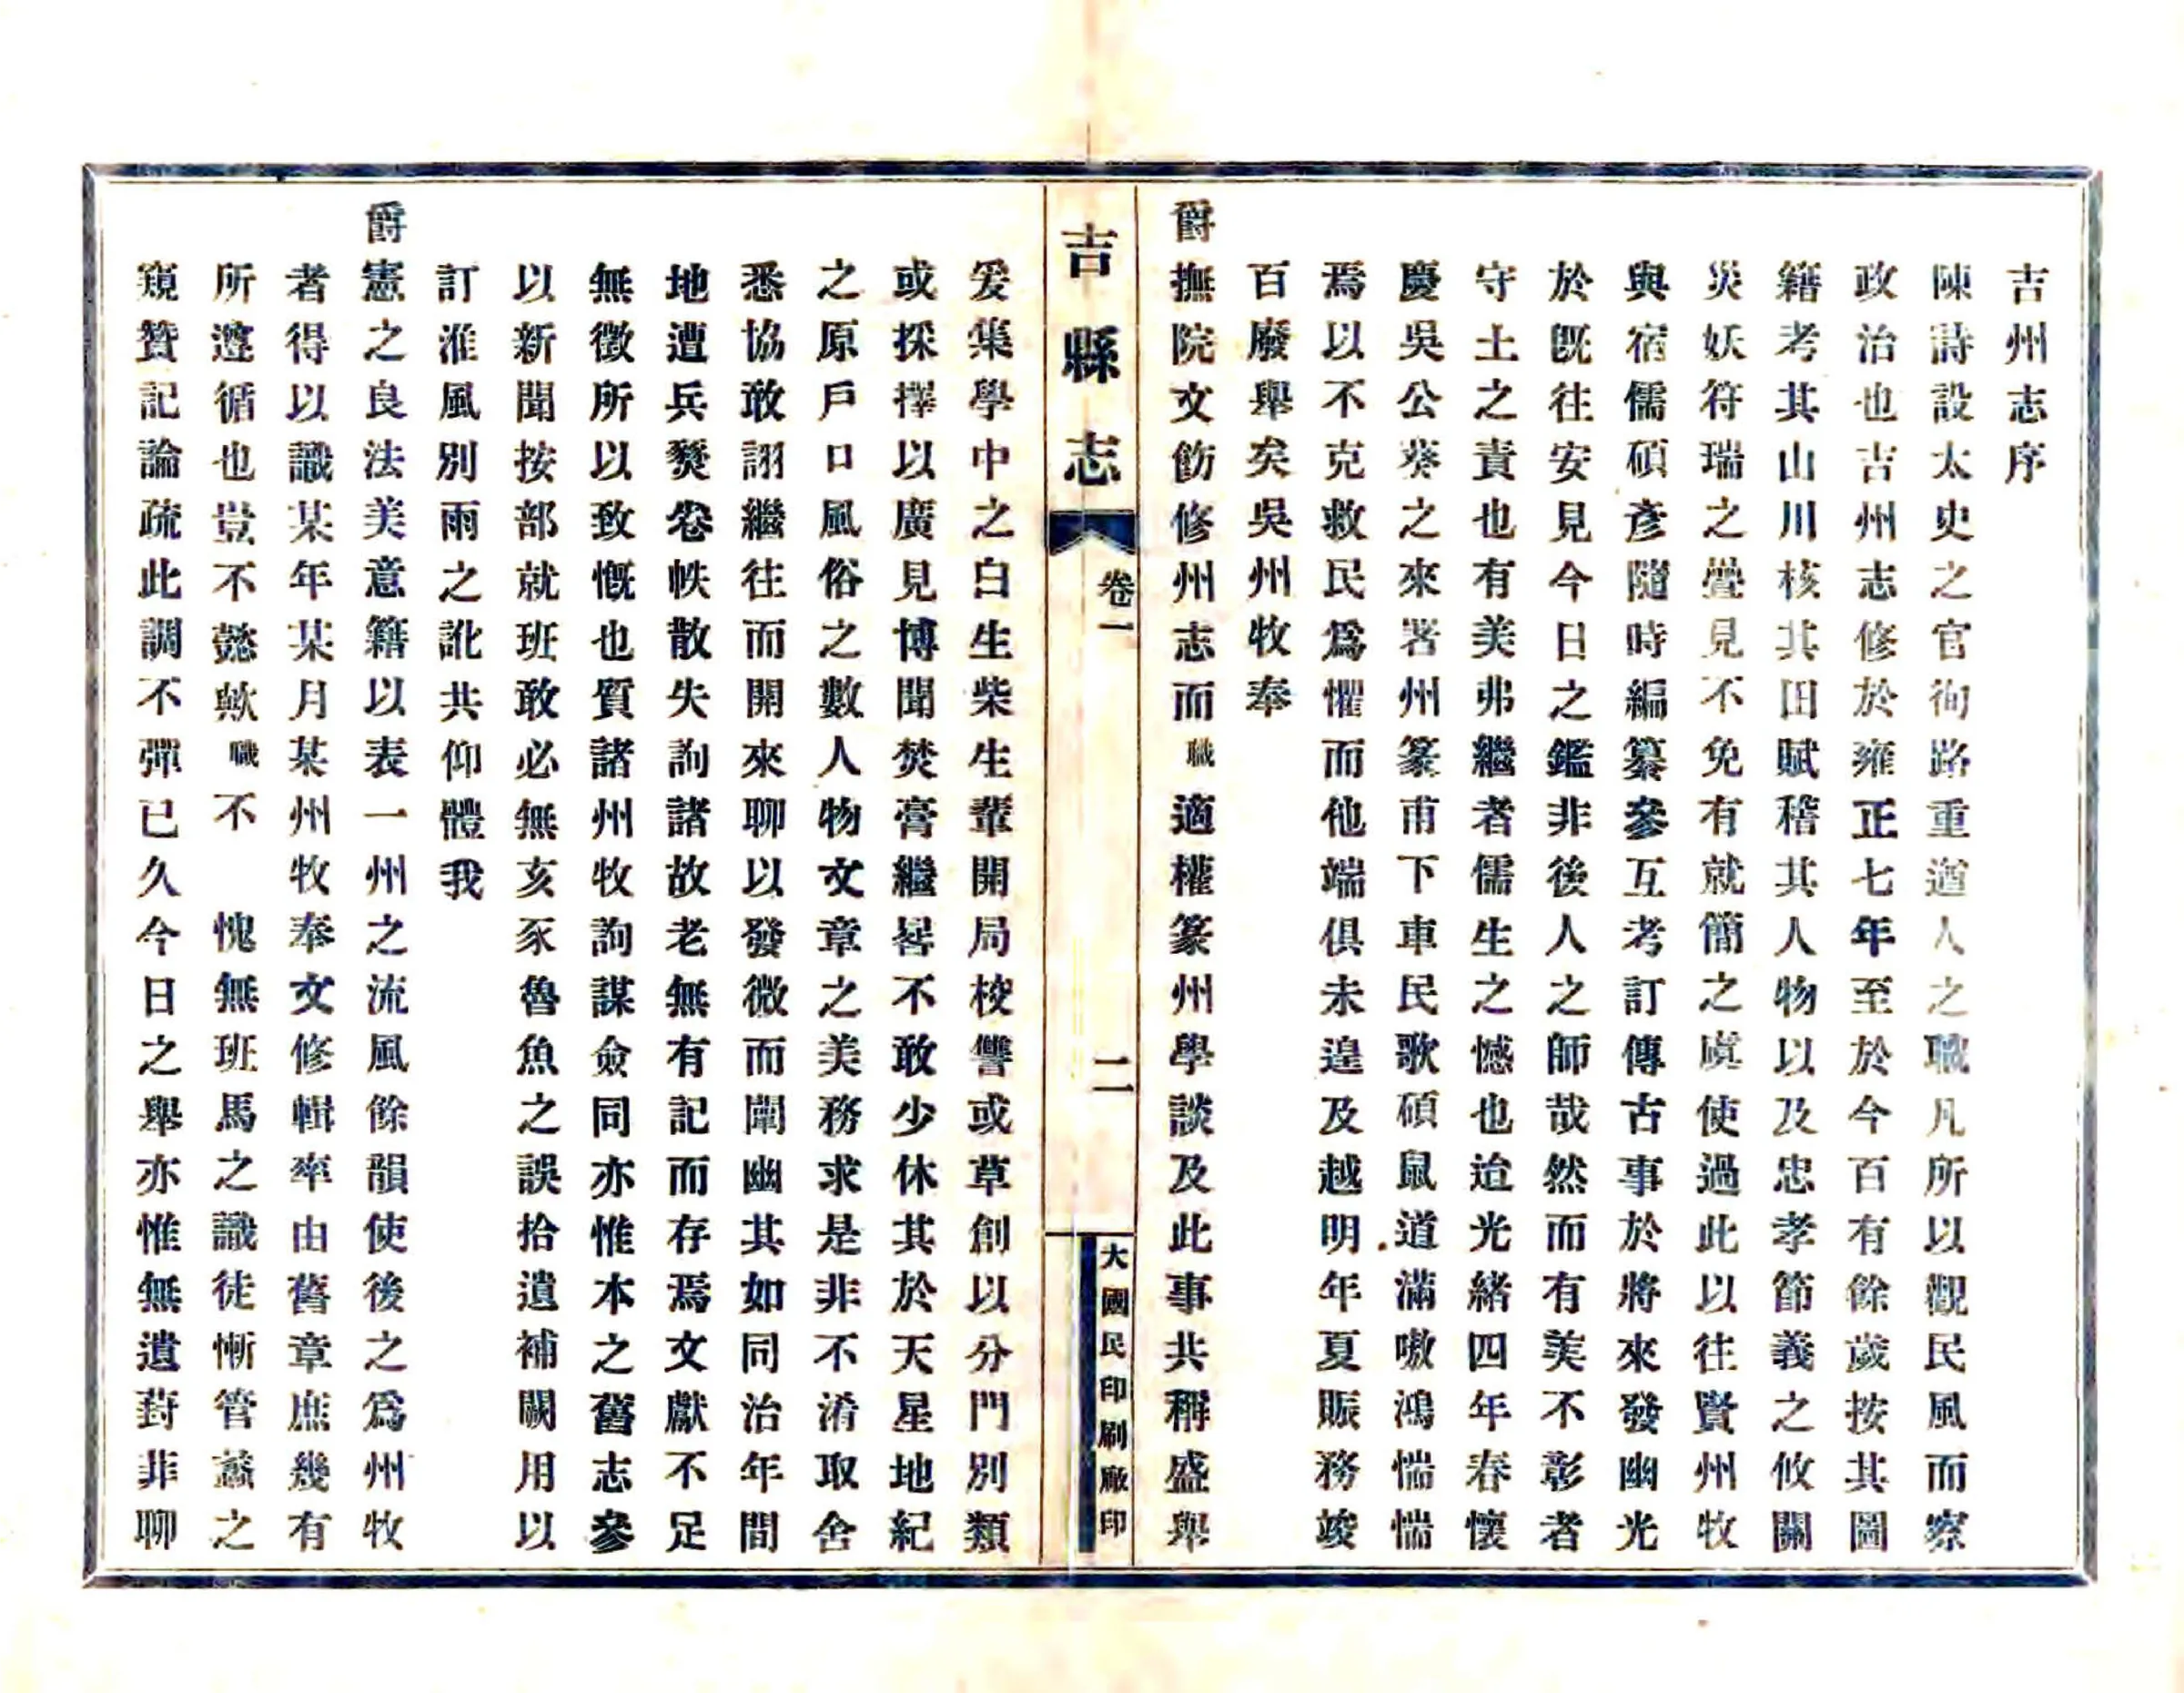 吉州志序
陳詩設太史之官徇路重遒人之職凡所以觀民風而察
政治也吉州志修於雍正七年至於今百有餘歲按其圖
籍考其山川核其田賦稽其人物以及忠孝節義之攸關
災妖符瑞之疊見不免有就簡之虞使過此以往賢州牧
與宿儒碩彥隨時編纂參互考訂傳古事於將來發幽光
於既往安見今日之鑑非後人之師哉然而有美不彰者
守土之責也有美弗繼者儒生之憾也迨光緒四年春懷
慶吳公葵之來署州篆甫下車民歌碩鼠道滿嗷鴻惴惴
焉以不克救民爲懼而他端俱未遑及越明年夏賑務竣
百廢舉矣吳州牧奉
爵撫院文飭修州志而職適權篆州學談及此事共稱盛舉
吉縣志
卷一
二
大國民印刷廠印
爰集學中之白生柴生輩開局校讐或草創以分門別類
或採擇以廣見博聞焚膏繼晷不敢少休其於天星地紀
之原戶口風俗之數人物文章之美務求是非不淆取舍
悉協敢詡繼往而開來聊以發微而闡幽其如同治年間
地遭兵燹卷帙散失詢諸故老無有記而存焉文獻不足
無徵所以致慨也質諸州牧詢謀僉同亦惟本之舊志參
以新聞按部就班敢必無亥豕魯魚之誤拾遺補闕用以
訂淮風別雨之訛共仰體我
爵憲之良法美意籍以表一州之流風餘韻使後之爲州牧
者得以識某年某月某州牧奉文修輯率由舊章庶幾有
所遵循也豈不懿歟職不 愧無班馬之識徒慚管蠡之
窺贊記論疏此調不彈已久今日之舉亦惟無遺葑菲聊